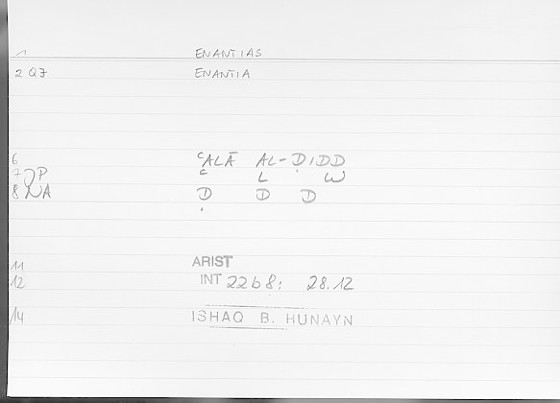 1 ENANTIAS
2 Q7 ENANTIA
6 ʿALĀ AL-ḌIDD
7 P ʿ L W
8 NA Ḍ D D
11 ARIST
12 INT 22b8; 28.12
14 ISHAQ B. HUNAYN